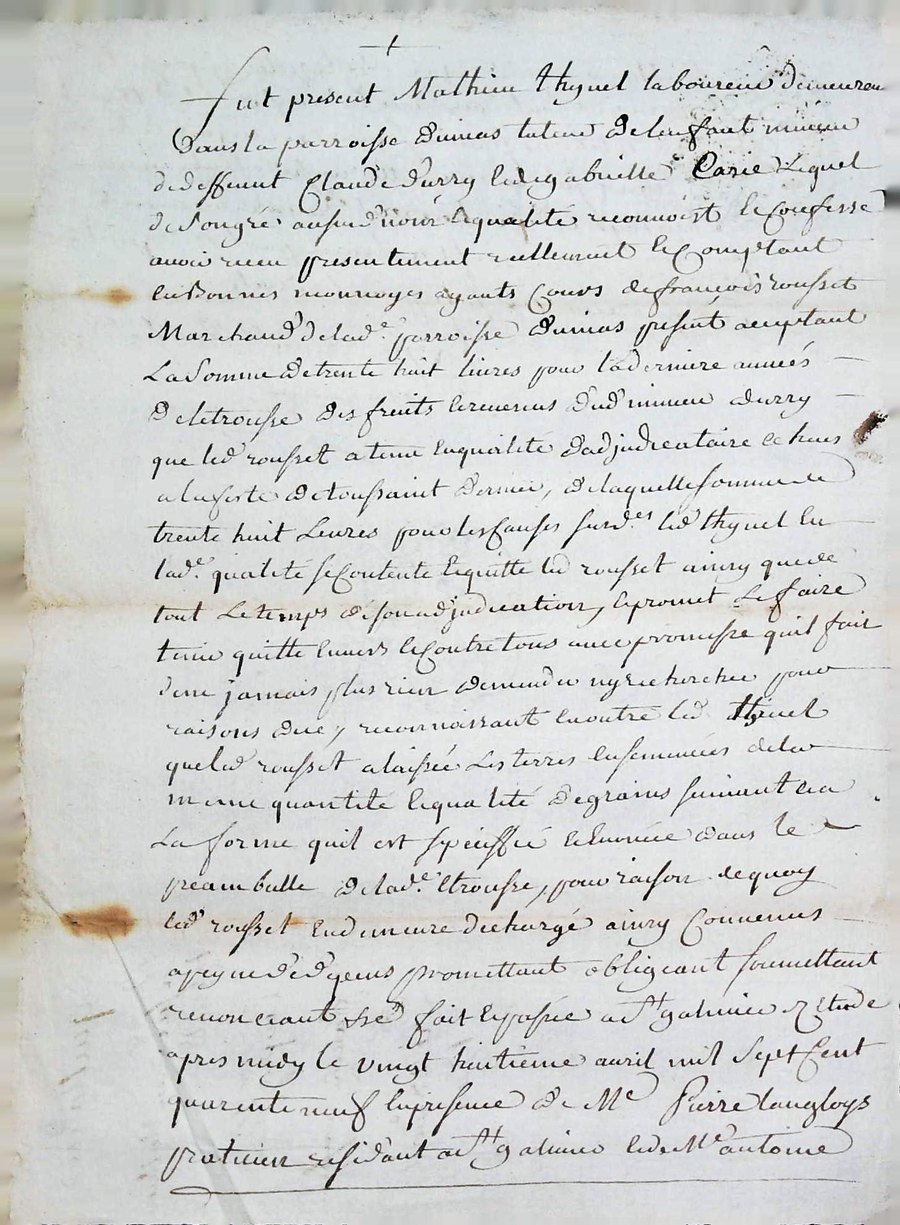 +
Fut present Mathieu thynel laboureur demeurant
Dans la parroisse tuteur de lenfant mineur
de deffunt Claude durry et de gabrielle Carie Lequel
de son gré aud. nom et qualité reconnoist et Confesse
avoir receu presentement reellement et Comptant
en Bonnes monnoyes ayants Cours de françois rousset
Marchand de lade. parroisse present acceptant
La Somme de trente huit livres pour la derniere année
De letrousse des fruits et revenus dud. mineur durry
que led rousset a tenu en qualité d'adjudicataire echeus
a la feste de toussaint dernier, de laquelle somme de
trente huit Livres pour les causes susd.es led thynel en
lade. qualité se Contente et quitte led rousset ainsy que de
tout Le temps de son adjudication, et promet Le faire
tenir quitte envers et Contre tous avec promesse quil fait
de ne jamais plus rien demander ny rechercher pour
raisons de ce, reconnoissant en outre led thinel
que led rousset a laissée Les terres ensemencées de la
meme quantité et qualité de grains suivant et a
La forme quil est speciffié et enoncée dans le
preambulle de lade. Etrousse, pour raison de quoy
led rousset en demeure dechargé ainsy Convenus
a peyne de d. promettant obligeant soumettant
renonceant &c fait et passée a St galmier Etude
apres midy le vingt huitième avril mil sept Cent
quarente neuf en presence de Me Pierre langloys
praticien residant a St galmier et de Me antoine